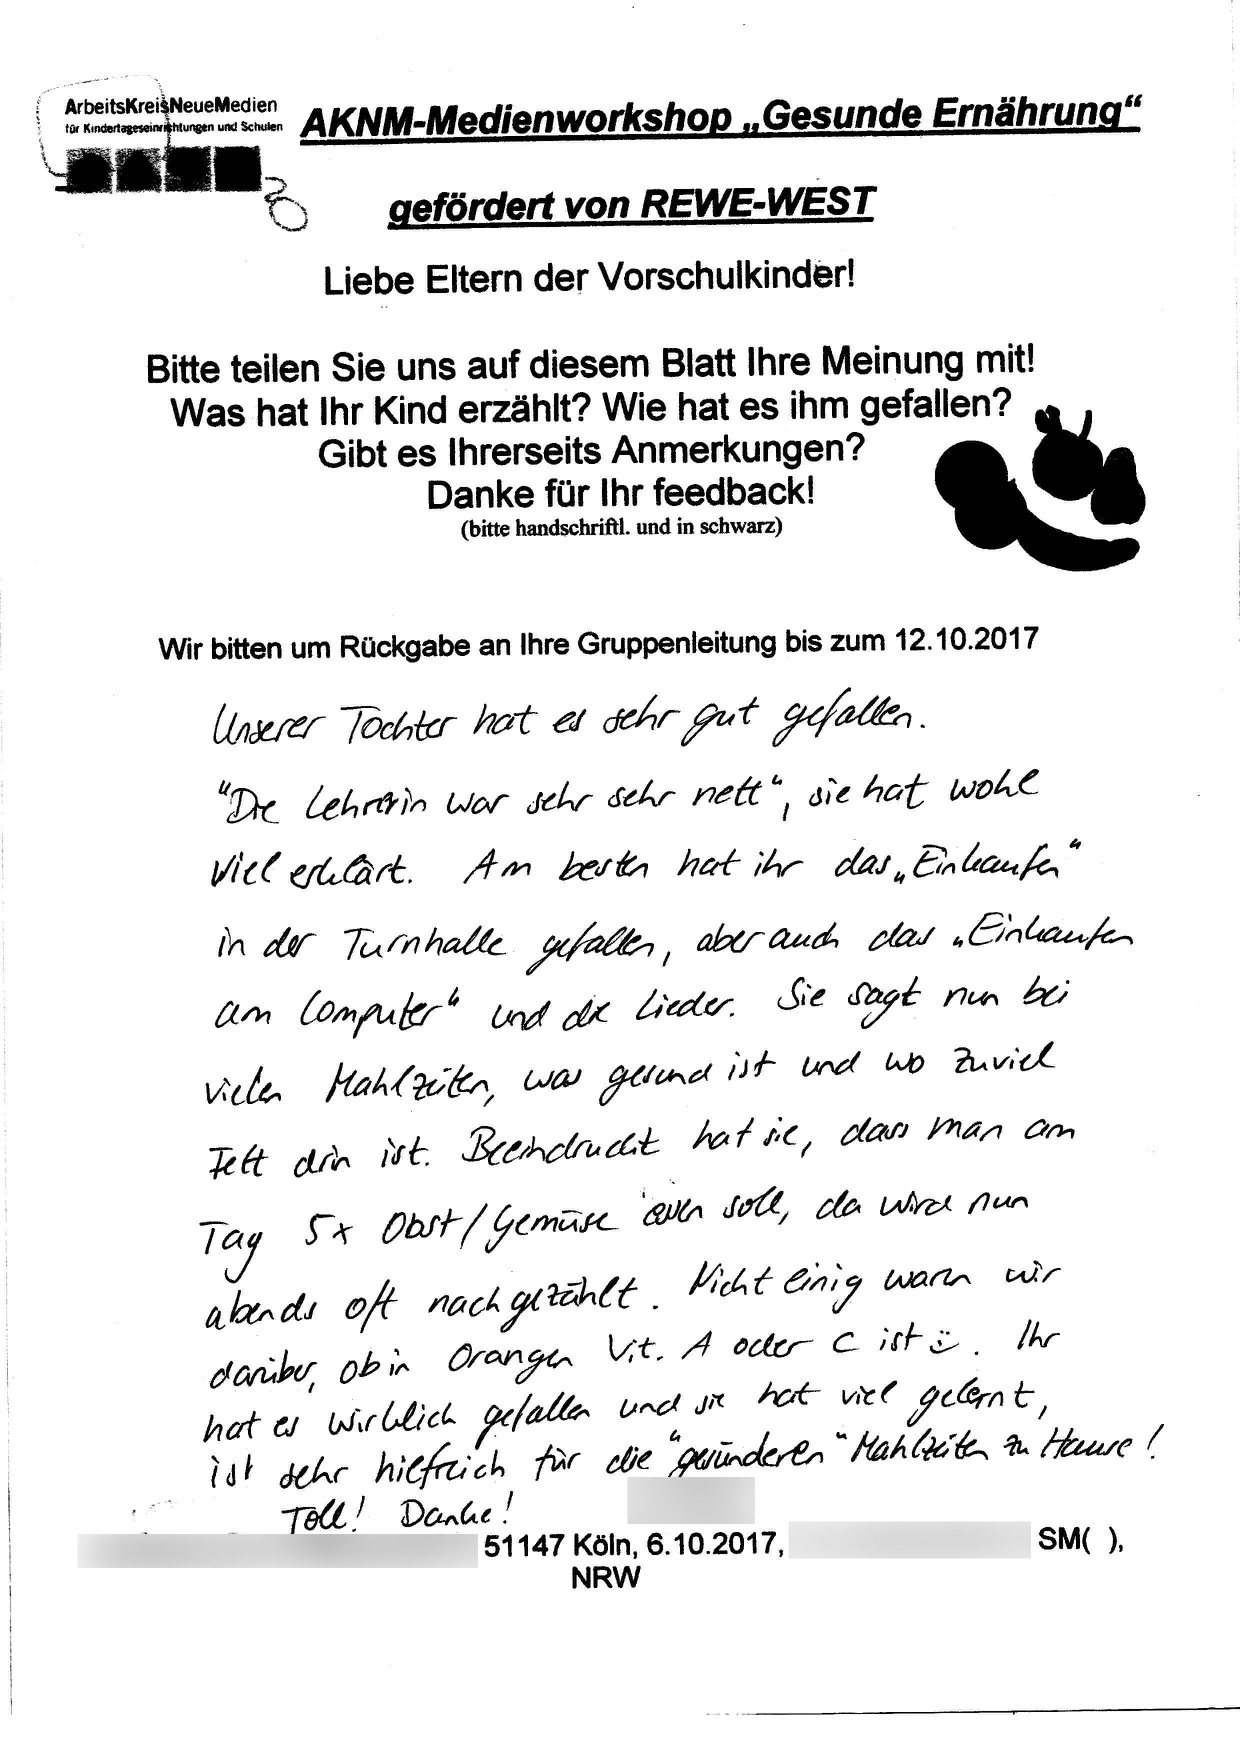 ArbeitsKreisNeueMedien
für Kindertageseinrichtungen und Schulen
AKNM-Medienworkshop „Gesunde Ernährung“
gefördert von REWE-WEST
Liebe Eltern der Vorschulkinder!
Bitte teilen Sie uns auf diesem Blatt Ihre Meinung mit!
Was hat Ihr Kind erzählt? Wie hat es ihm gefallen?
Gibt es Ihrerseits Anmerkungen?
Danke für Ihr feedback!
(bitte handschriftl. und in schwarz)
Wir bitten um Rückgabe an Ihre Gruppenleitung bis zum 12.10.2017
Unserer Tochter hat es sehr gut gefallen.
"Die Lehrerin war sehr sehr nett", sie hat wohl
viel erklärt. Am besten hat ihr das „Einkaufen“
in der Turnhalle gefallen, aber auch das „Einkaufen
am Computer“ und die Lieder. Sie sagt nun bei
vielen Mahlzeiten, was gesund ist und wo zuviel
Fett drin ist. Beeindruckt hat sie, dass man am
Tag 5x Obst/Gemüse essen soll, da wird nun
abends oft nachgezählt. Nicht einig waren wir
darüber, ob in Orangen Vit. A oder C ist☺. Ihr
hat es wirklich gefallen und sie hat viel gelernt,
ist sehr hilfreich für die "gesünderen" Mahlzeiten zu Hause!
Toll! Danke!
51147 Köln, 6.10.2017, SM( ),
NRW